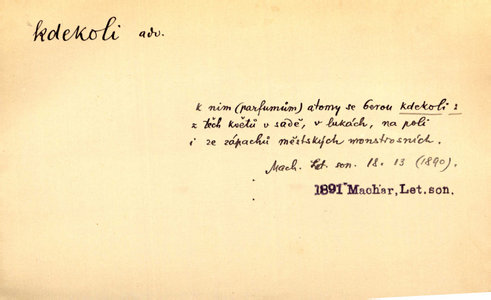 kdekoli adv.
k nim (parfumům) atomy se berou kdekoli :
z těch květů v sadě, v lukách, na poli
i ze zápachů městských monstrosních.
Mach. Let. son. 18. 13 (1890).
1891 Machar, Let.son.